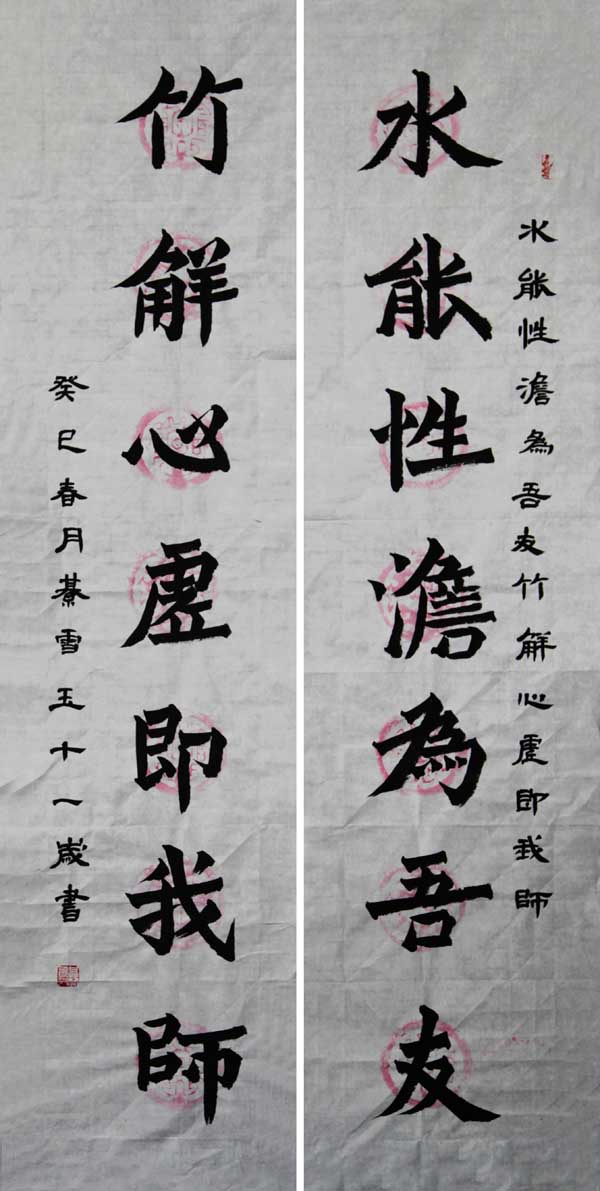 水能性澹為吾友竹觧心虛即我師
水能性澹為吾友
竹觧心虛即我師
癸巳春月綦雪玉十一歲書